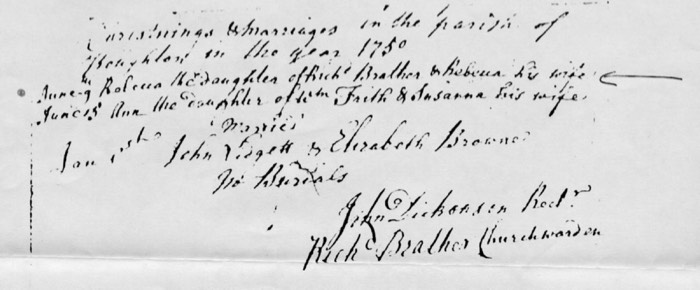 Christnings & Marriages in the parish of
Houghton in the year 1750
June 9th Rebecca the Daughter of Richd Brather & Rebecca his wife
June 15 Ann the Daughter of Wm Frith & Susanna his wife
Married
Jan 1st John & Elizabeth Browne
No Burials
John Dickonsen Rectr
Richd Brather Churchwarden